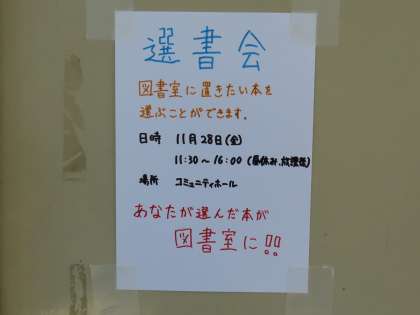 選書会
図書室に置きたい本を
選ぶことができます.
日時 11月28日(金)
11:30～16:00 (昼休み、放課後)
場所 コミュニティホール
あなたが選んだ本が
図書室に!!